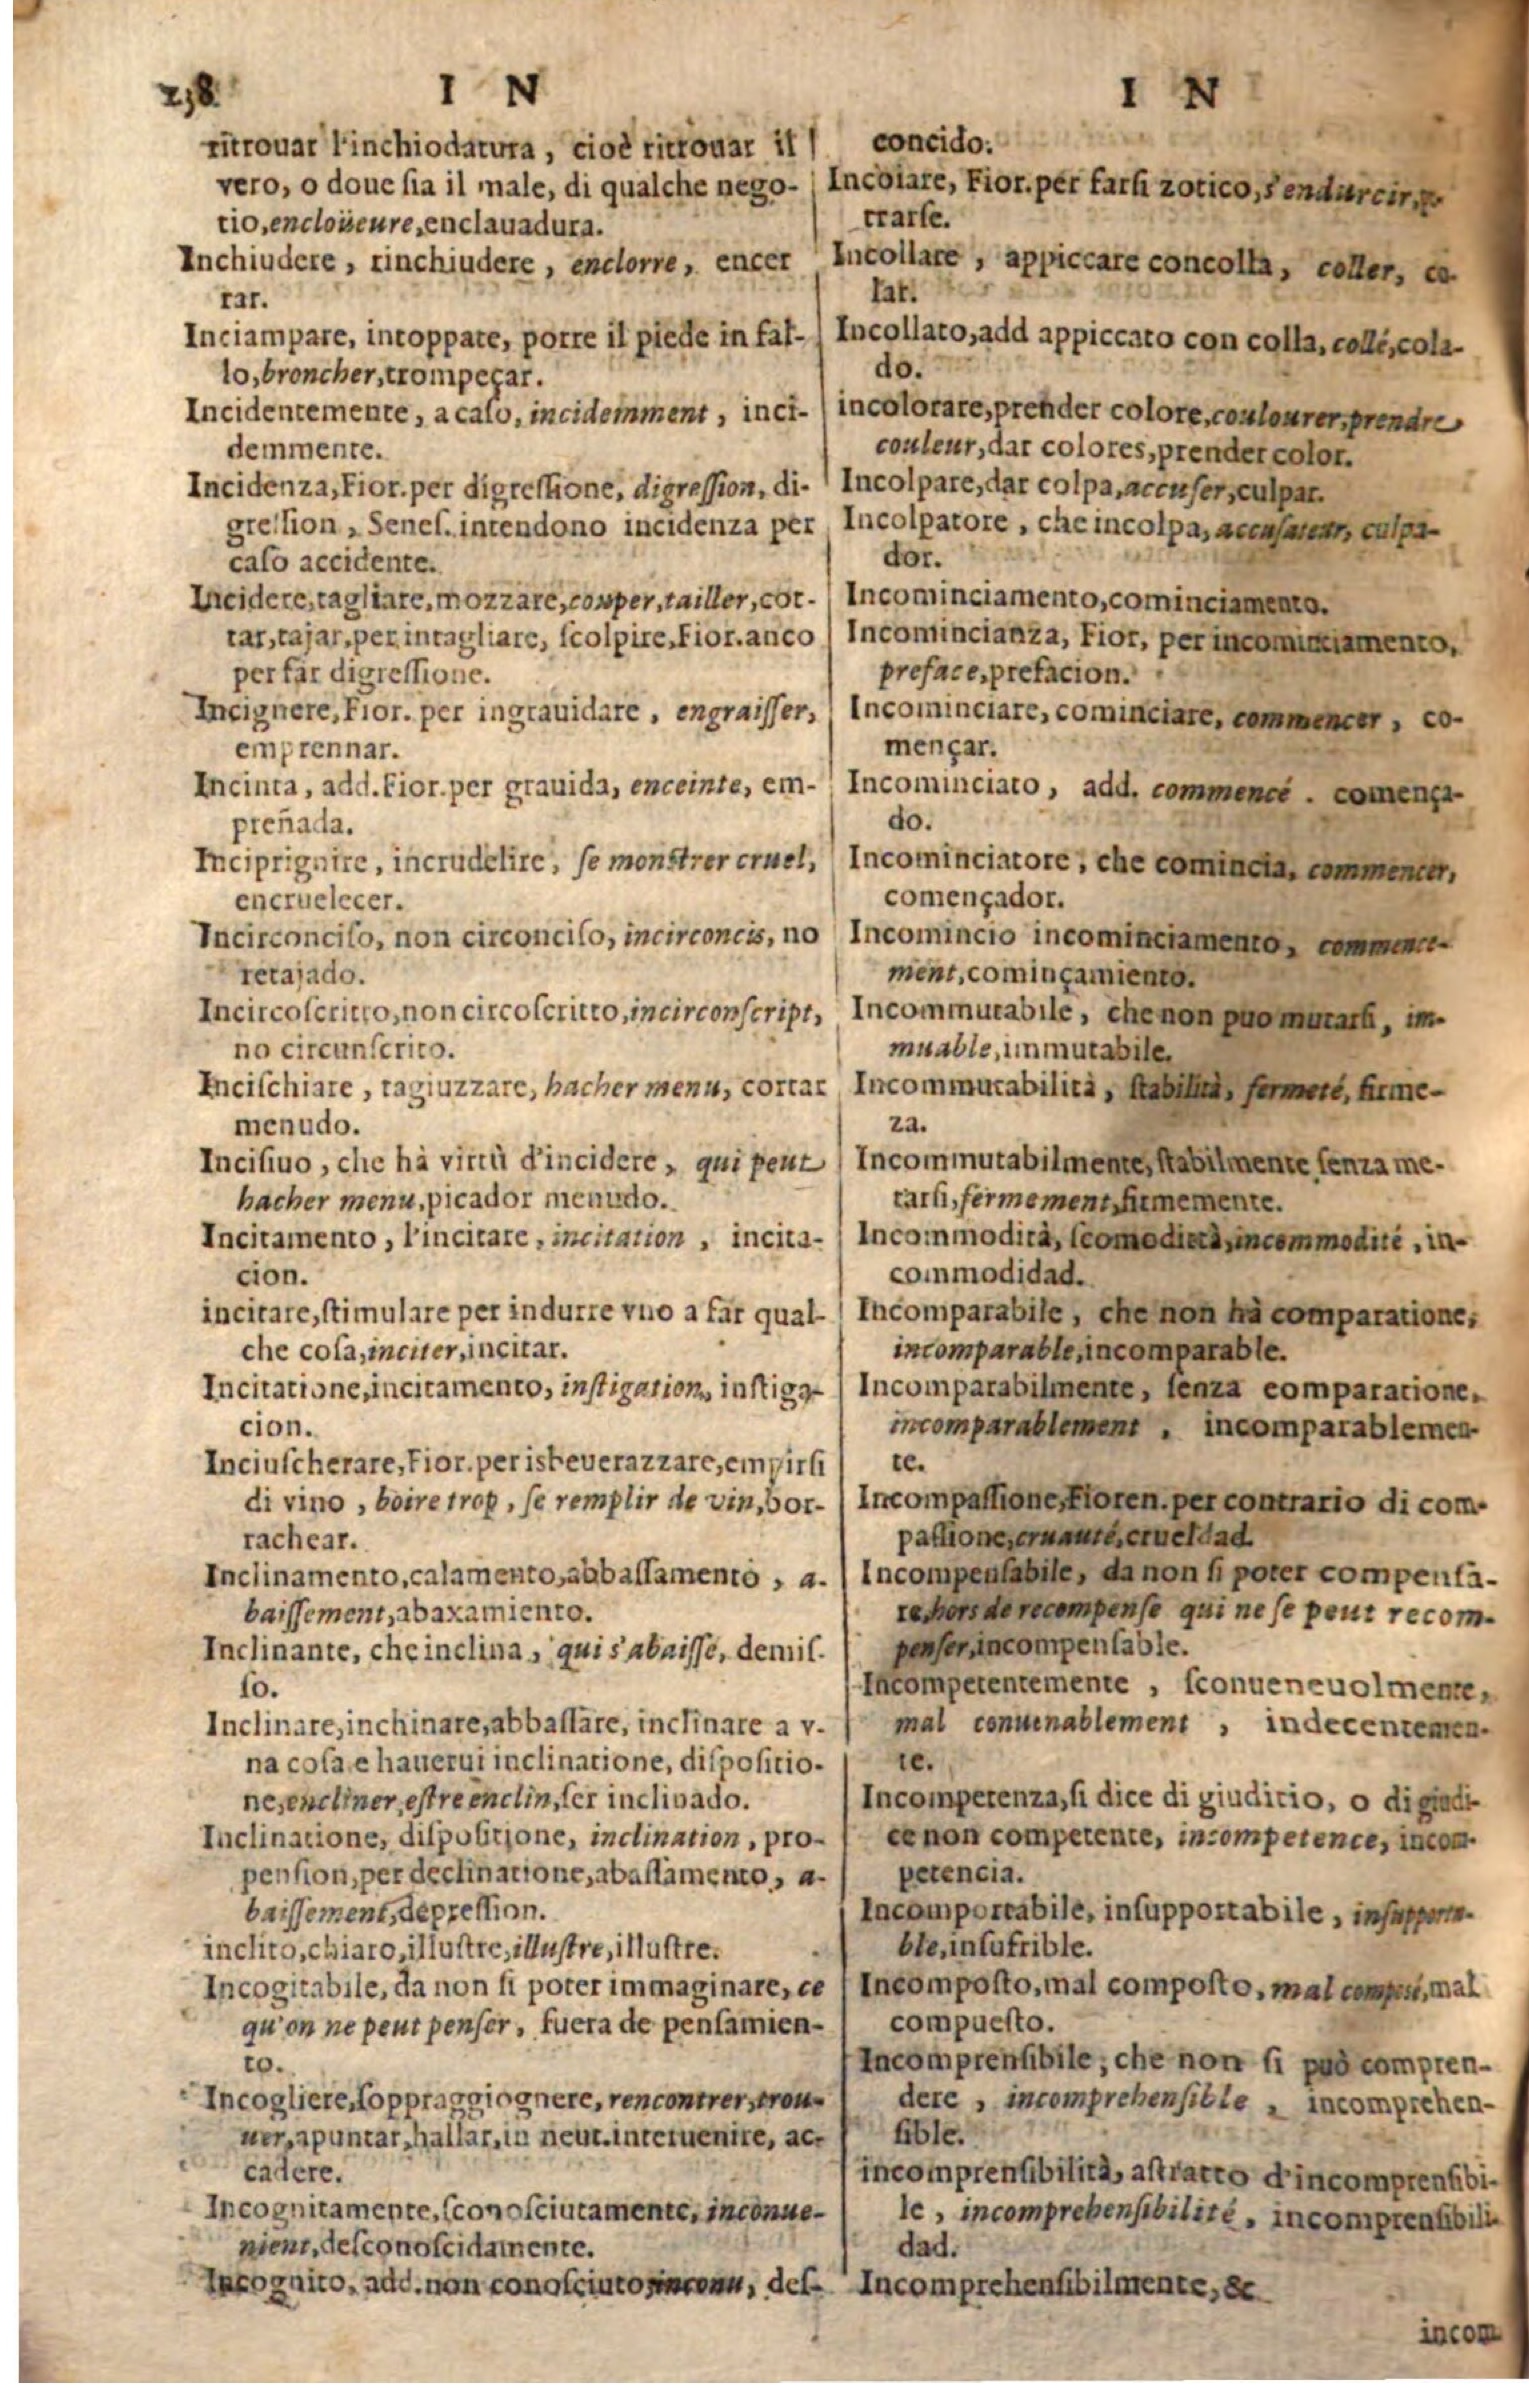 238
I N
ritrouar l'inchiodatura, cioè ritrouar il
vero, o doue ſia il male, di qualche nego-
tio, encloüeure, enclauadura.
Inchiudere, rinchiudere, enclorre, encer
rar.
Inciampare, intoppare, porre il piede in fal-
lo, broncher, trompeçar.
Incidentemente, a caſo, incidemment, inci-
demmente.
Incidenza, Fior. per digreſſione, digreſſion, di-
greſſion, Seneſ. intendono incidenza per
caſo accidente.
Incidere, tagliare, mozzare, couper, tailler, cor-
tar, tajar, per intagliare, ſcolpire, Fior. anco
per far digreſſione.
Incignere, Fior. per ingrauidare, engraiſſer,
emprennar.
Incinta, add. Fior. per grauida, enceinte, em-
preñada.
Inciprignire, incrudelire, ſe monſtrer cruel,
encruelecer.
Incirconciſo, non circonciſo, incirconcis, no
retajado.
Incircoſcritto, non circoſcritto, incirconſcript,
no circunſcrito.
Inciſchiare, tagiuzzare, hacher menu, cortar
menudo.
Inciſiuo, che hà virtù d'incidere, qui peut
hacher menu, picador menudo.
Incitamento, l'incitare, incitation, incita-
cion.
incitare, ſtimulare per indurre vno a far qual-
che coſa, inciter, incitar.
Incitatione, incitamento, inſtigation, inſtiga-
cion.
Inciuſcherare, Fior. per isbeuerazzare, empirſi
di vino, boire trop, ſe remplir de vin, bor-
rachear.
Inclinamento, calamento, abbaſſamento, a-
baiſſement, abaxamiento.
Inclinante, che inclina, qui s'abaiſſe, demiſ-
ſo.
Inclinare, inchinare, abbaſſare, inclinare a v-
na coſa e hauerui inclinatione, diſpoſitio-
ne, encliner, eſtre enclin, ſer inclinado.
Inclinatione, diſpoſitione, inclination, pro-
penſion, per declinatione, abaſſamento, a-
baiſſement, depreſſion.
inclito, chiaro, illuſtre, illuſtre, illuſtre.
Incogitabile, da non ſi poter immaginare, ce
qu'on ne peut penſer, fuera de penſamien-
to.
Incogliere, ſoppraggiognere, rencontrer, trou-
uer, apuntar, hallar, in neut. interuenire, ac-
cadere.
Incognitamente, ſconoſciutamente, inconue-
nient, deſconoſcidamente.
Incognito, add. non conoſciuto, inconu, deſ-
I N
concido.
Incoiare, Fior. per farſi zotico, s'endurcir,
trarſe.
Incollare, appiccare con colla, coller, co-
lar.
Incollato, add appiccato con colla, collé, cola-
do.
incolorare, prender colore, coulourer, prendre
couleur, dar colores, prender color.
Incolpare, dar colpa, accuſer, culpar.
Incolpatore, che incolpa, accuſateur, culpa-
dor.
Incominciamento, cominciamento.
Incomincianza, Fior, per incominciamento,
preface, prefacion.
Incominciare, cominciare, commencer, co-
mençar.
Incominciato, add. commencé. comença-
do.
Incominciatore, che comincia, commencer,
començador.
Incomincio incominciamento, commence-
ment, cominçamiento.
Incommutabile, che non puo mutarſi, im-
muable, immutabile.
Incommutabilità, ſtabilità, fermeté, firme-
za.
Incommutabilmente, ſtabilmente ſenza me-
tarſi, fermement, firmemente.
Incommodità, ſcomodità, incommodité, in-
commodidad.
Incomparabile, che non hà comparatione,
incomparable, incomparable.
Incomparabilmente, ſenza comparatione,
incomparablement, incomparablemen-
te.
Incompaſſione, Fioren. per contrario di com-
paſſione, cruauté, crueldad.
Incompenſabile, da non ſi poter compenſa-
re, hors de recompenſe qui ne ſe peut recom-
penſer, incompenſable.
Incompetentemente, ſconueneuolmente,
mal conuenablement, indecentemen-
te.
Incompetenza, ſi dice di giuditio, o di giudi-
ce non competente, incompetence, incom-
petencia.
Incomportabile, inſupportabile, inſupporta-
ble, inſufrible.
Incompoſto, mal compoſto, mal compoſé, mal
compueſto.
Incomprenſibile, che non ſi può compren-
dere, incomprehenſible, incomprehen-
ſible.
incomprenſibilità, aſtratto d'incomprenſibi-
le, incomprehenſibilité, incomprenſibili-
dad.
Incomprehenſibilmente, &c
incom